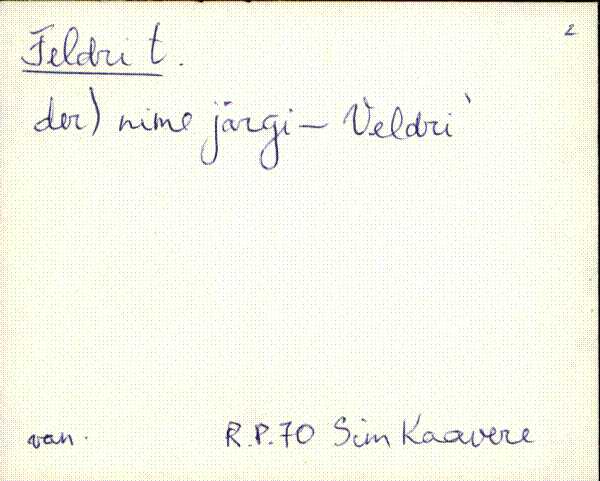 2
Feldri t.
der) nime järgi – Veldri`
van. R.P.70 Sim Kaavere